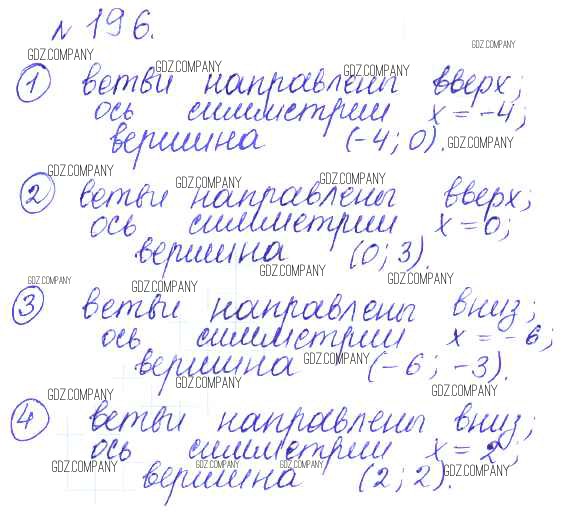 № 196.
GDZ.COMPANY GDZ.COMPANY
GDZ.COMPANY GDZ.COMPANY
1 ветви направлены вверх;
ось симметрии x = -4;
вершина (-4; 0). GDZ.COMPANY
GDZ.COMPANY GDZ.COMPANY GDZ.COMPANY
2 ветви направлены вверх;
ось симметрии x = 0;
вершина (0; 3).
GDZ.COMPANY GDZ.COMPANY
GDZ.COMPANY GDZ.COMPANY
3 ветви направлены вниз;
ось симметрии x = -6;
вершина GDZ.COMPANY (-6; -3).
GDZ.COMPANY GDZ.COMPANY GDZ.COMPANY
4 ветви направлены вниз;
ось симметрии x = 2;
GDZ.COMPANY GDZ.COMPANY GDZ.COMPANY GDZ.COMPANY
вершина (2; 2).